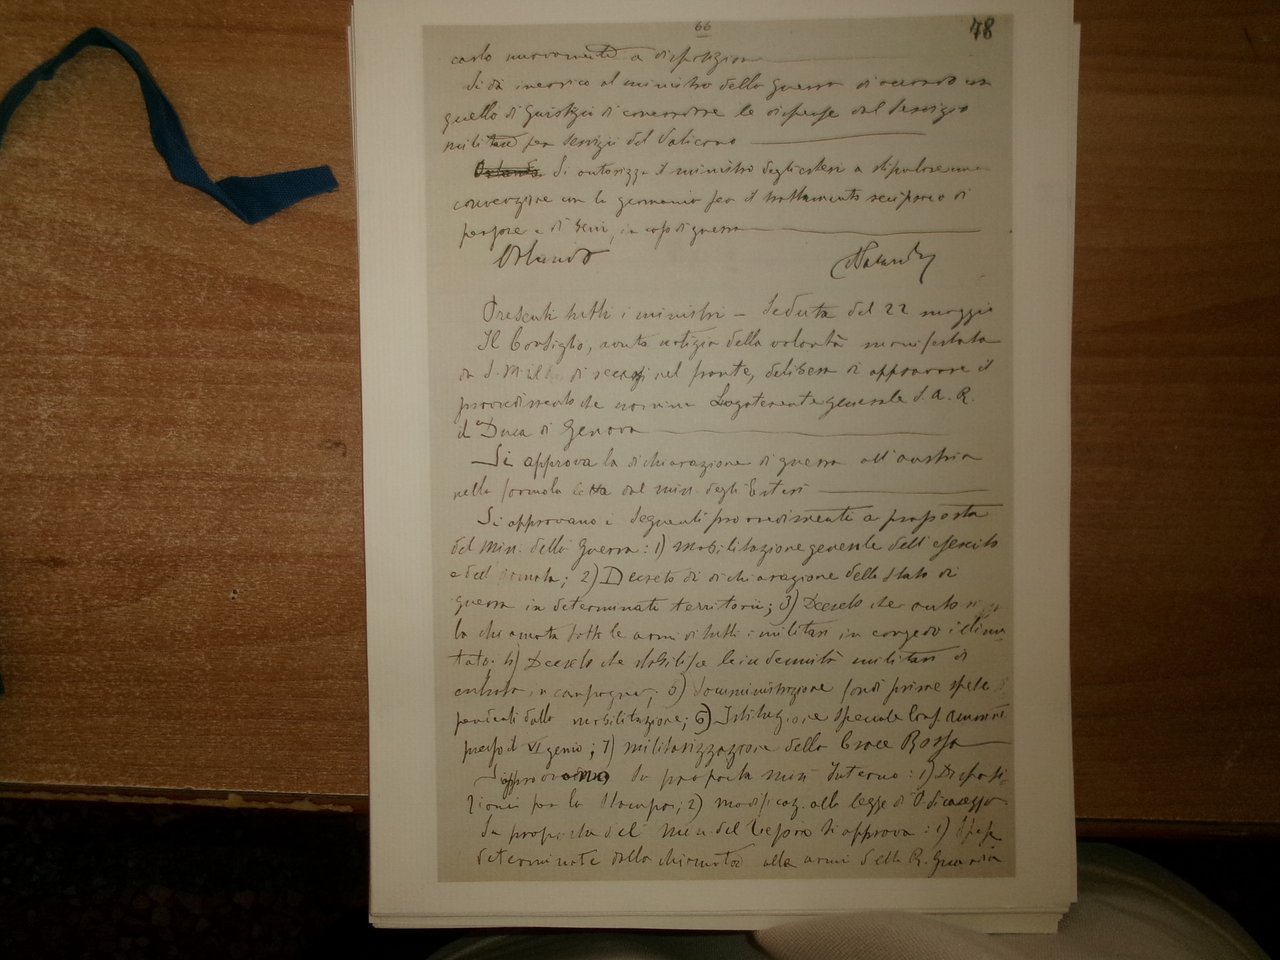 66
78
nuovamente a disposizione
Si dà incarico al ministro della guerra di accordo con
quello di Giustizia di concedere le dispense dal servizio
militare per servizii del Vaticano
Orlando Si autorizza il ministro degli esteri a stipulare una
convenzione con la germania per il trattamento reciproco di
persone e di beni, in caso di guerra
Orlando Salandra
Presenti tutti i ministri – Seduta del 22 maggio
Il Consiglio, avuta notizia della volontà manifestata
da S. M. il Re di recarsi nel fronte, delibera di approvare il
provvedimento che nomina Luogotenente generale S. A. R.
il Duca di Genova
Si approva la dichiarazione di guerra all'austria
nella formola letta dal min. degli Esteri
Si approvano i seguenti provvedimenti a proposta
del Min. della Guerra: 1) mobilitazione generale dell'esercito
e dell'armata; 2) Decreto di dichiarazione dello stato di
guerra in determinati territorii; 3) Decreto che autorizza
la chiamata sotto le armi di tutti i militari in congedo illimi
tato. 4) Decreto che stabilisce le indennità militari di
entrata in campagna; 5) somministrazione fondi prime spese
dalla mobilitazione; 6) Istituzione speciale
presso il VI genio; 7) militarizzazione della Croce Rossa
Si approvano su proposta min Interno: 1) Disposi-
zioni per la Stampa; 2) modificaz. alla legge di P. S.
Su proposta del Min. del Tesoro si approva: 1) Spese
determinate dalla chiamata alle armi della R. Guardia